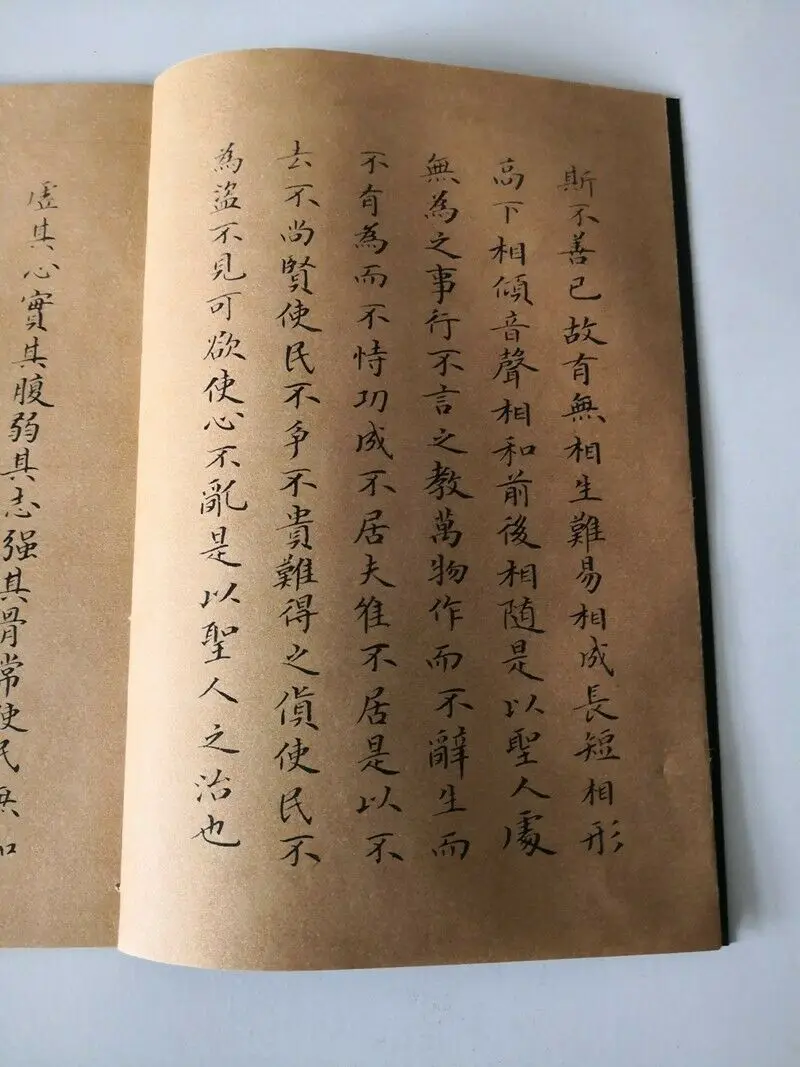 斯不善已故有無相生難易相成長短相形
高下相傾音聲相和前後相随是以聖人處
無為之事行不言之教萬物作而不辭生而
不有為而不恃功成不居夫隹不居是以不
去不尚賢使民不争不貴難得之貨使民不
為盜不見可欲使心不亂是以聖人之治也
虛其心實其腹弱其志强其骨常使民無